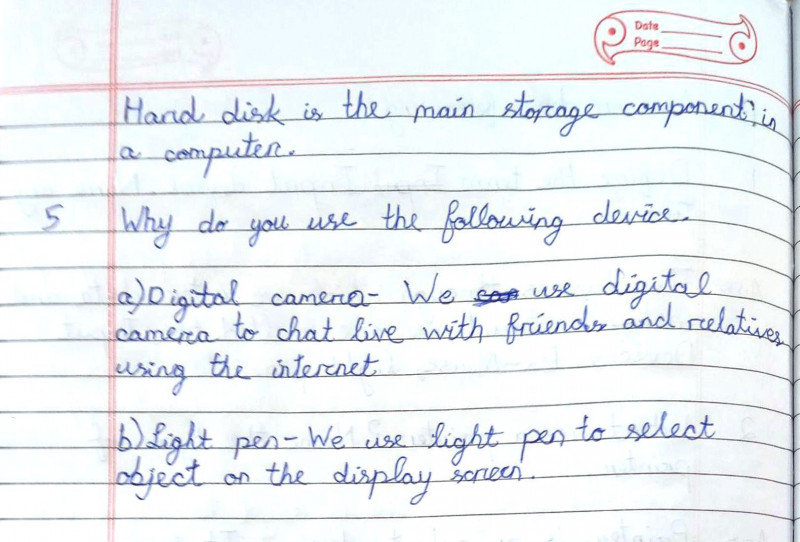 Date
Page
Hard disk is the main storage component in
a computer.
5 Why do you use the following device.
a) Digital camera - We use digital
camera to chat live with friends and relatives
using the internet
b) Light pen - We use light pen to select
object on the display screen.